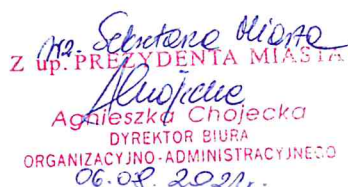 wz. Sekretarza Miasta
Z up. PREZYDENTA MIASTA
Agnieszka Chojecka
DYREKTOR BIURA
ORGANIZACYJNO-ADMINISTRACYJNEGO
06.08.2021r.